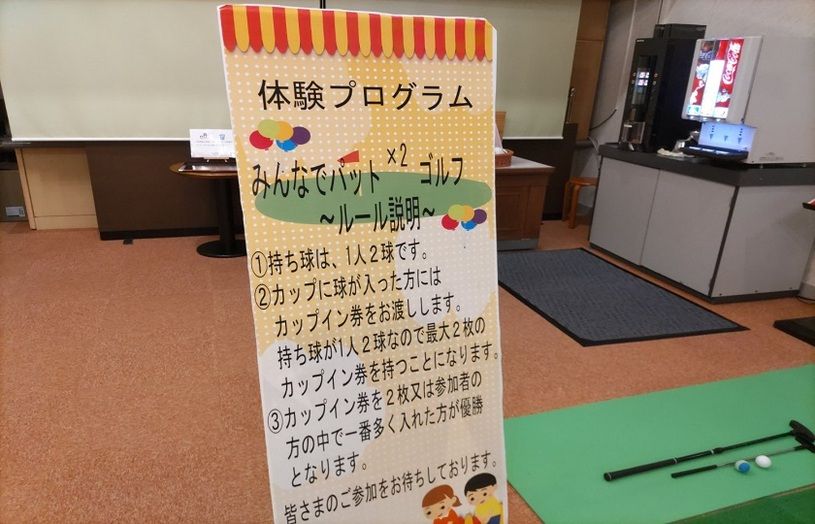 体験プログラム
みんなでパット×2 ゴルフ
～ルール説明～
①持ち球は、1人2球です。
②カップに球が入った方には
カップイン券をお渡しします。
持ち球が1人2球なので最大2枚の
カップイン券を持つことになります。
③カップイン券を2枚又は参加者の
方の中で一番多く入れた方が優勝
となります。
皆さまのご参加をお待ちしております。